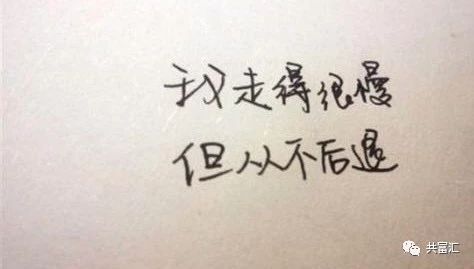 我走得很慢
但从不后退
共富汇